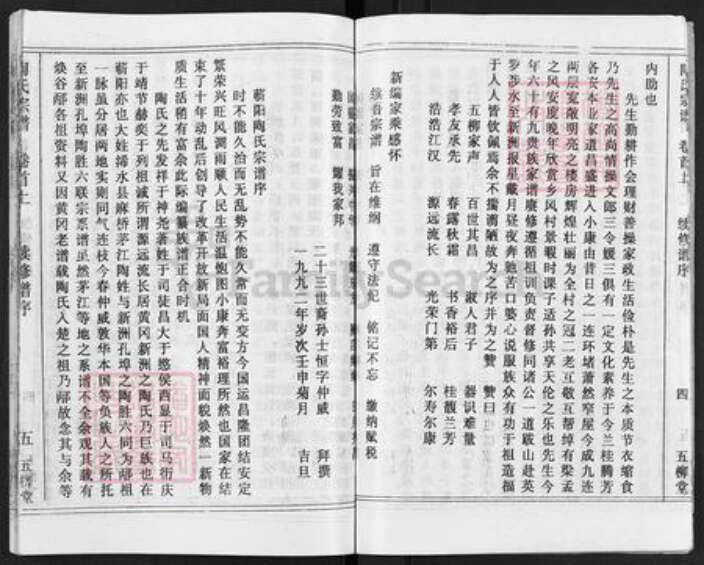 陶氏宗谱 卷首上 续修谱序 四 五柳堂
内助也
先生勤耕作会理财善操家政生活俭朴是先生之本质节衣缩食
乃先生之高尚情操文郎三令媛三俱有一定文化素养于今兰桂腾芳
各安本业家道昌盛进入小康由昔日之一连环堵萧然窄屋今成九连
两层宽敞明亮之楼房辉煌壮丽为全村之冠二老互敬互帮绰有梁孟
之风安度晚年欣赏乡风村景暇时课子适孙共享天伦之乐也先生今
年六十有九贵族家谱赓修遵循祖训负责督修同诸公一道跋山赴英
罗涉水至新洲报星戴月昼夜奔驰苦口婆心说服族众有功于祖造福
于人人皆饮佩焉余不揣谫陋故为之序并为之赞 赞曰
五柳家声 百世其昌 淑人君子 器识难量
孝友承先 春露秋霜 书香裕后 桂馥兰芳
浩浩江汉 源远流长 光荣门第 尔寿尔康
新编家乘感怀
续修宗谱 旨在维纲 遵守法纪 铭记不忘 缴纳赋税
勤劳致富 耀我家邦
二十三世裔孙士恒字仲威 拜撰
一九九二年岁次壬申菊月 吉旦
蕲阳陶氏宗谱序
时不能久治而无乱势不能久常而无变方今国运昌隆团结安定
繁荣兴旺风调雨顺人民生活温饱小康奔富裕理所然也国家在结
束了十年动乱后创导了改革开放新局面国人精神面貌焕然一新物
质生活稍有富余此际编纂族谱正合时机
陶氏之先发祥于神尧著姓于司徒昌大于愍侯西显于司马衍庆
于靖节赫奕于列祖诚所谓源远流长居黄冈新洲之陶氏乃巨族也在
蕲阳亦也大姓浠水县麻桥茅江陶姓与新洲孔埠之陶胜六同为邵祖
一脉虽分居两地实则同气连枝今春仲威敦华本国等负族人之所托
至新洲孔埠陶胜六联宗系谱虽然茅江等地之系谱不全余观其载有
焕谷邵各祖资料又因黄冈老谱载陶氏入楚之祖乃邵故念其与余等
陶氏宗谱 卷首上 续修谱序 五 五柳堂
FamilySearch